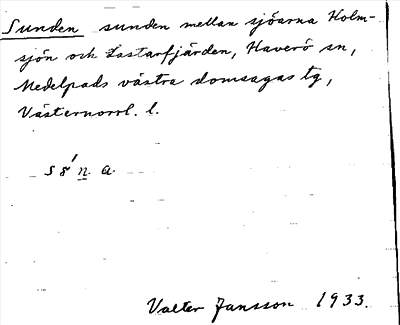 Sunden sunden mellan sjöarna Holm-
sjön och Lastarfjärden, Haverö sn,
Medelpads västra domsagas tg,
Västernorrl. l.
s8́n a
Valter Jansson 1933.